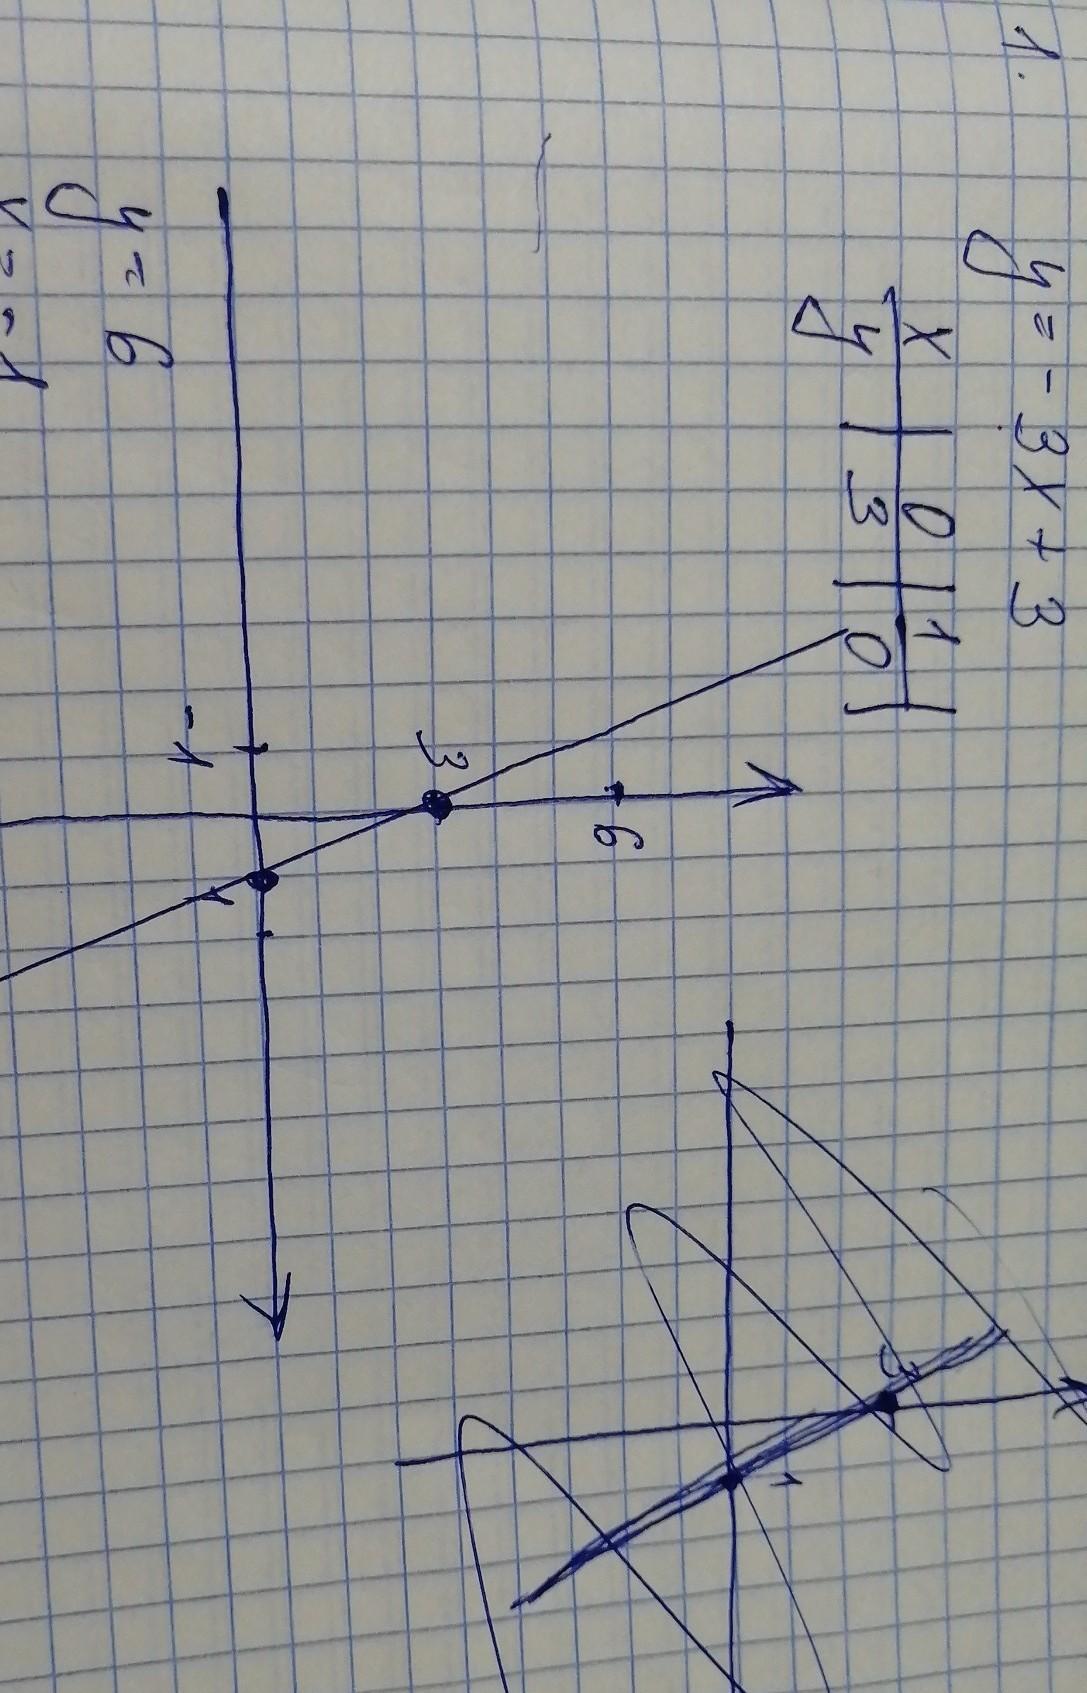 1.
y = - 3x + 3
x | 0 | 1 |
y | 3 | 0 |
6
3
-1
3
1
y = 6
x = -1